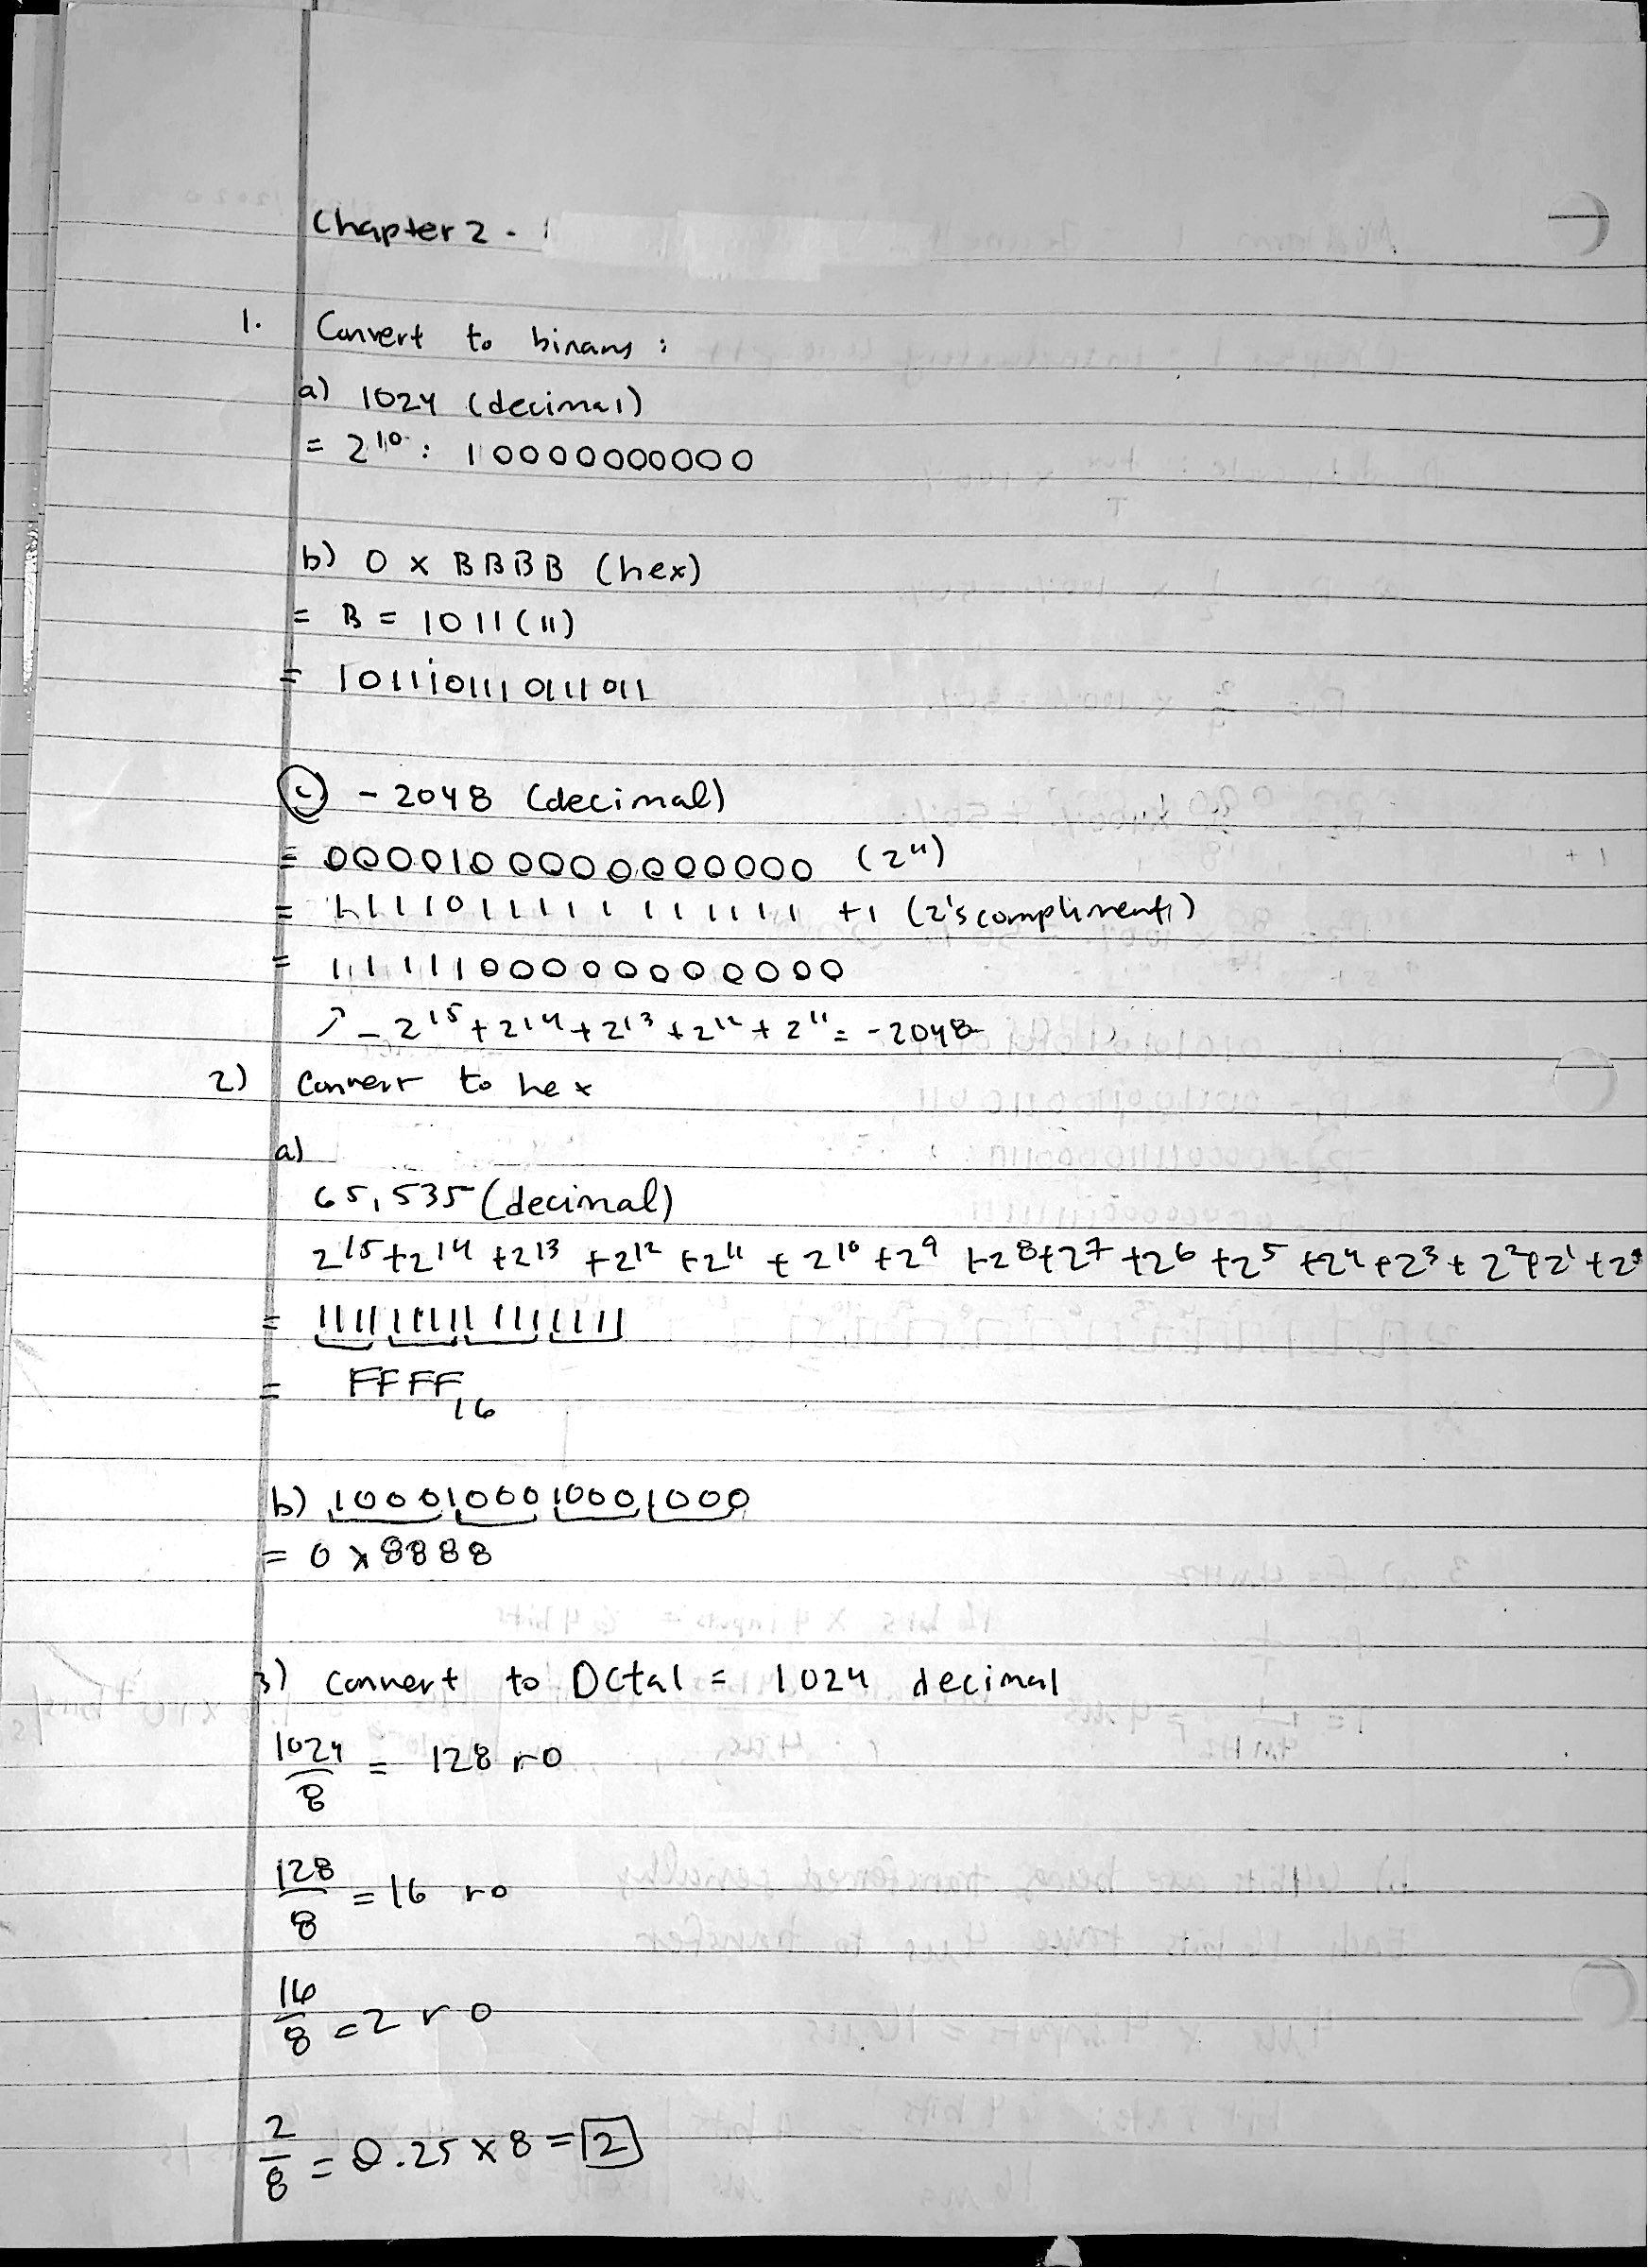 Chapter 2.
1. Convert to binary :
a) 1024 (decimal)
= 2^10 : 10000000000
b) 0 x BBBB (hex)
= B = 1011 (11)
= 1011101110111011
c) - 2048 (decimal)
= 0000100000000000 (2^11)
= 1111011111111111 +1 (2's compliment)
= 1111100000000000
↗ - 2^15 + 2^14 + 2^13 + 2^12 + 2^11 = -2048
2) Convert to hex
a)
65,535 (decimal)
2^15 + 2^14 + 2^13 + 2^12 + 2^11 + 2^10 + 2^9 + 2^8 + 2^7 + 2^6 + 2^5 + 2^4 + 2^3 + 2^2 + 2^1 + 2^0
= 1111111111111111
= FFFF_16
b) 1000100010001000
= 0 x 8888
3) Convert to Octal = 1024 decimal
1024/8 = 128 r0
128/8 = 16 r0
16/8 = 2 r0
2/8 = 0.25 x 8 = 2